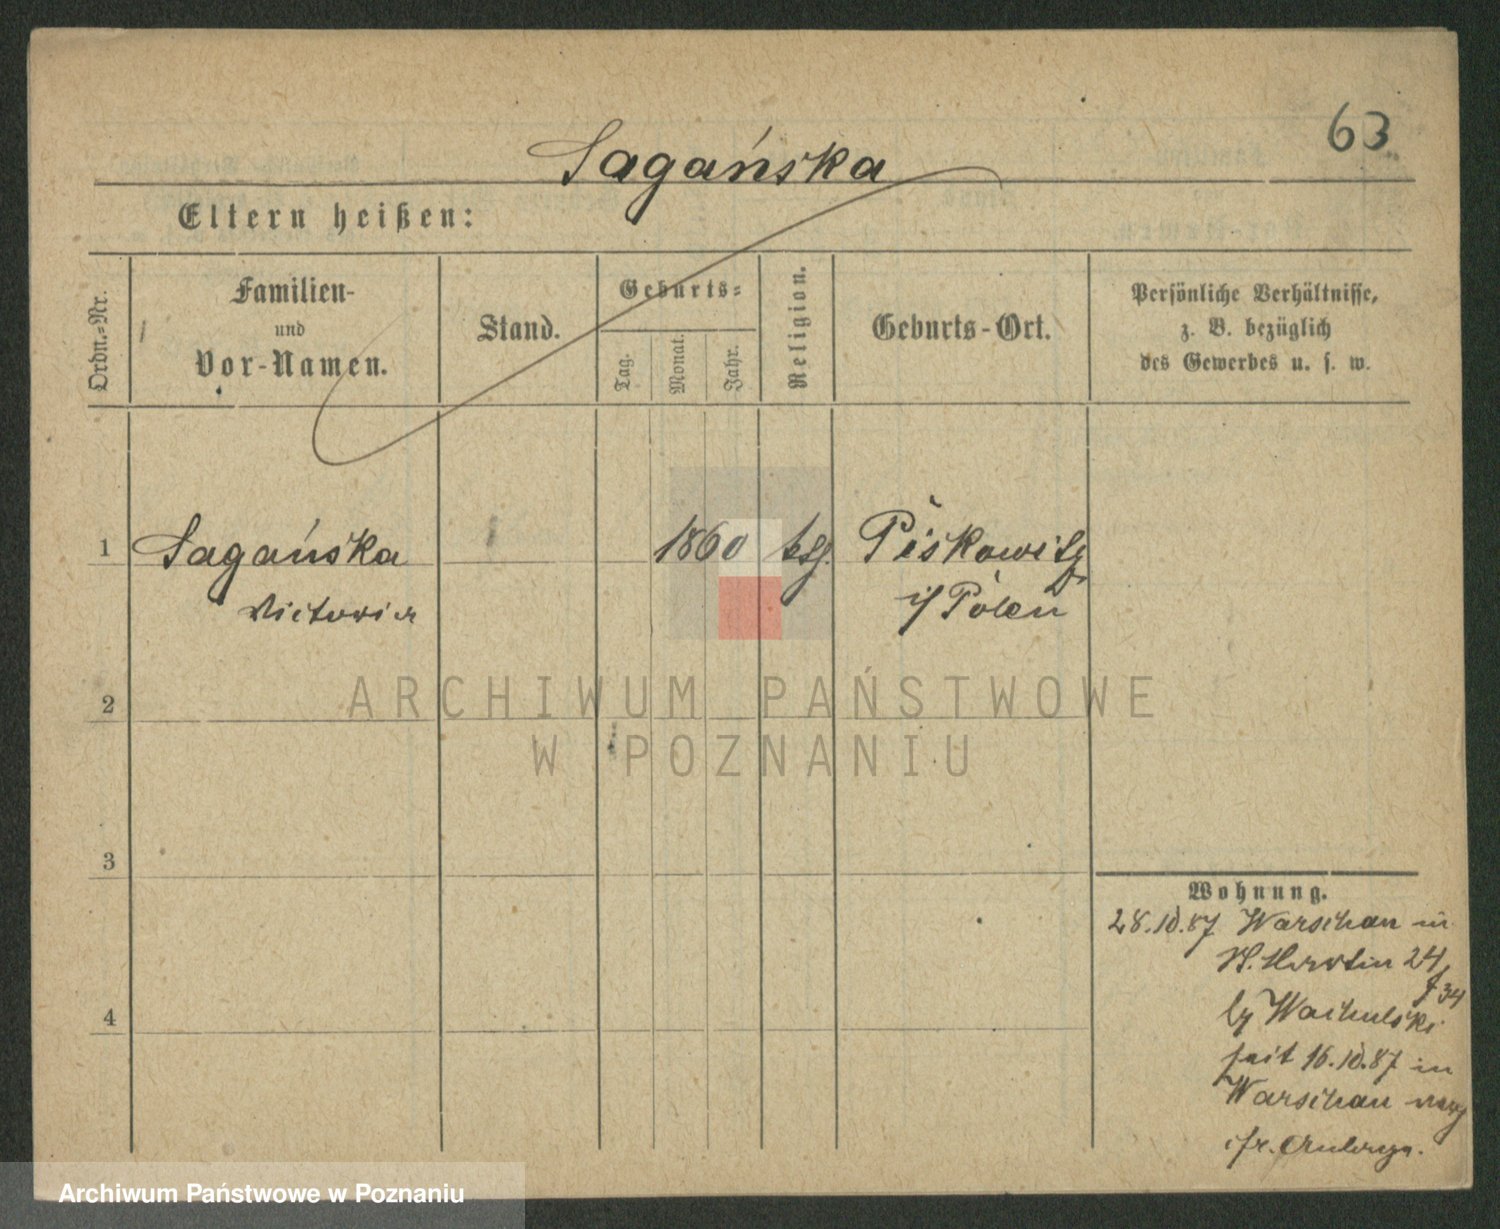 63
Sagańska
Eltern heißen:
Ordn.-Nr.
Familien-
und
Vor-Namen.
Stand.
Geburts-
Tag.
Monat.
Jahr.
Religion.
Geburts-Ort.
Persönliche Verhältnisse,
z. B. bezüglich
des Gewerbes u. s. w.
1 Sagańska 1860 Piskowitz
Victoria i/ Polen
2
3
4
ARCHIWUM PAŃSTWOWE
W POZNANIU
Wohnung.
28.10.87 Warschau in
St. Martin 24/
34
by Wachulski
seit 16.10.87 in
Warschau
ihr.
Archiwum Państwowe w Poznaniu